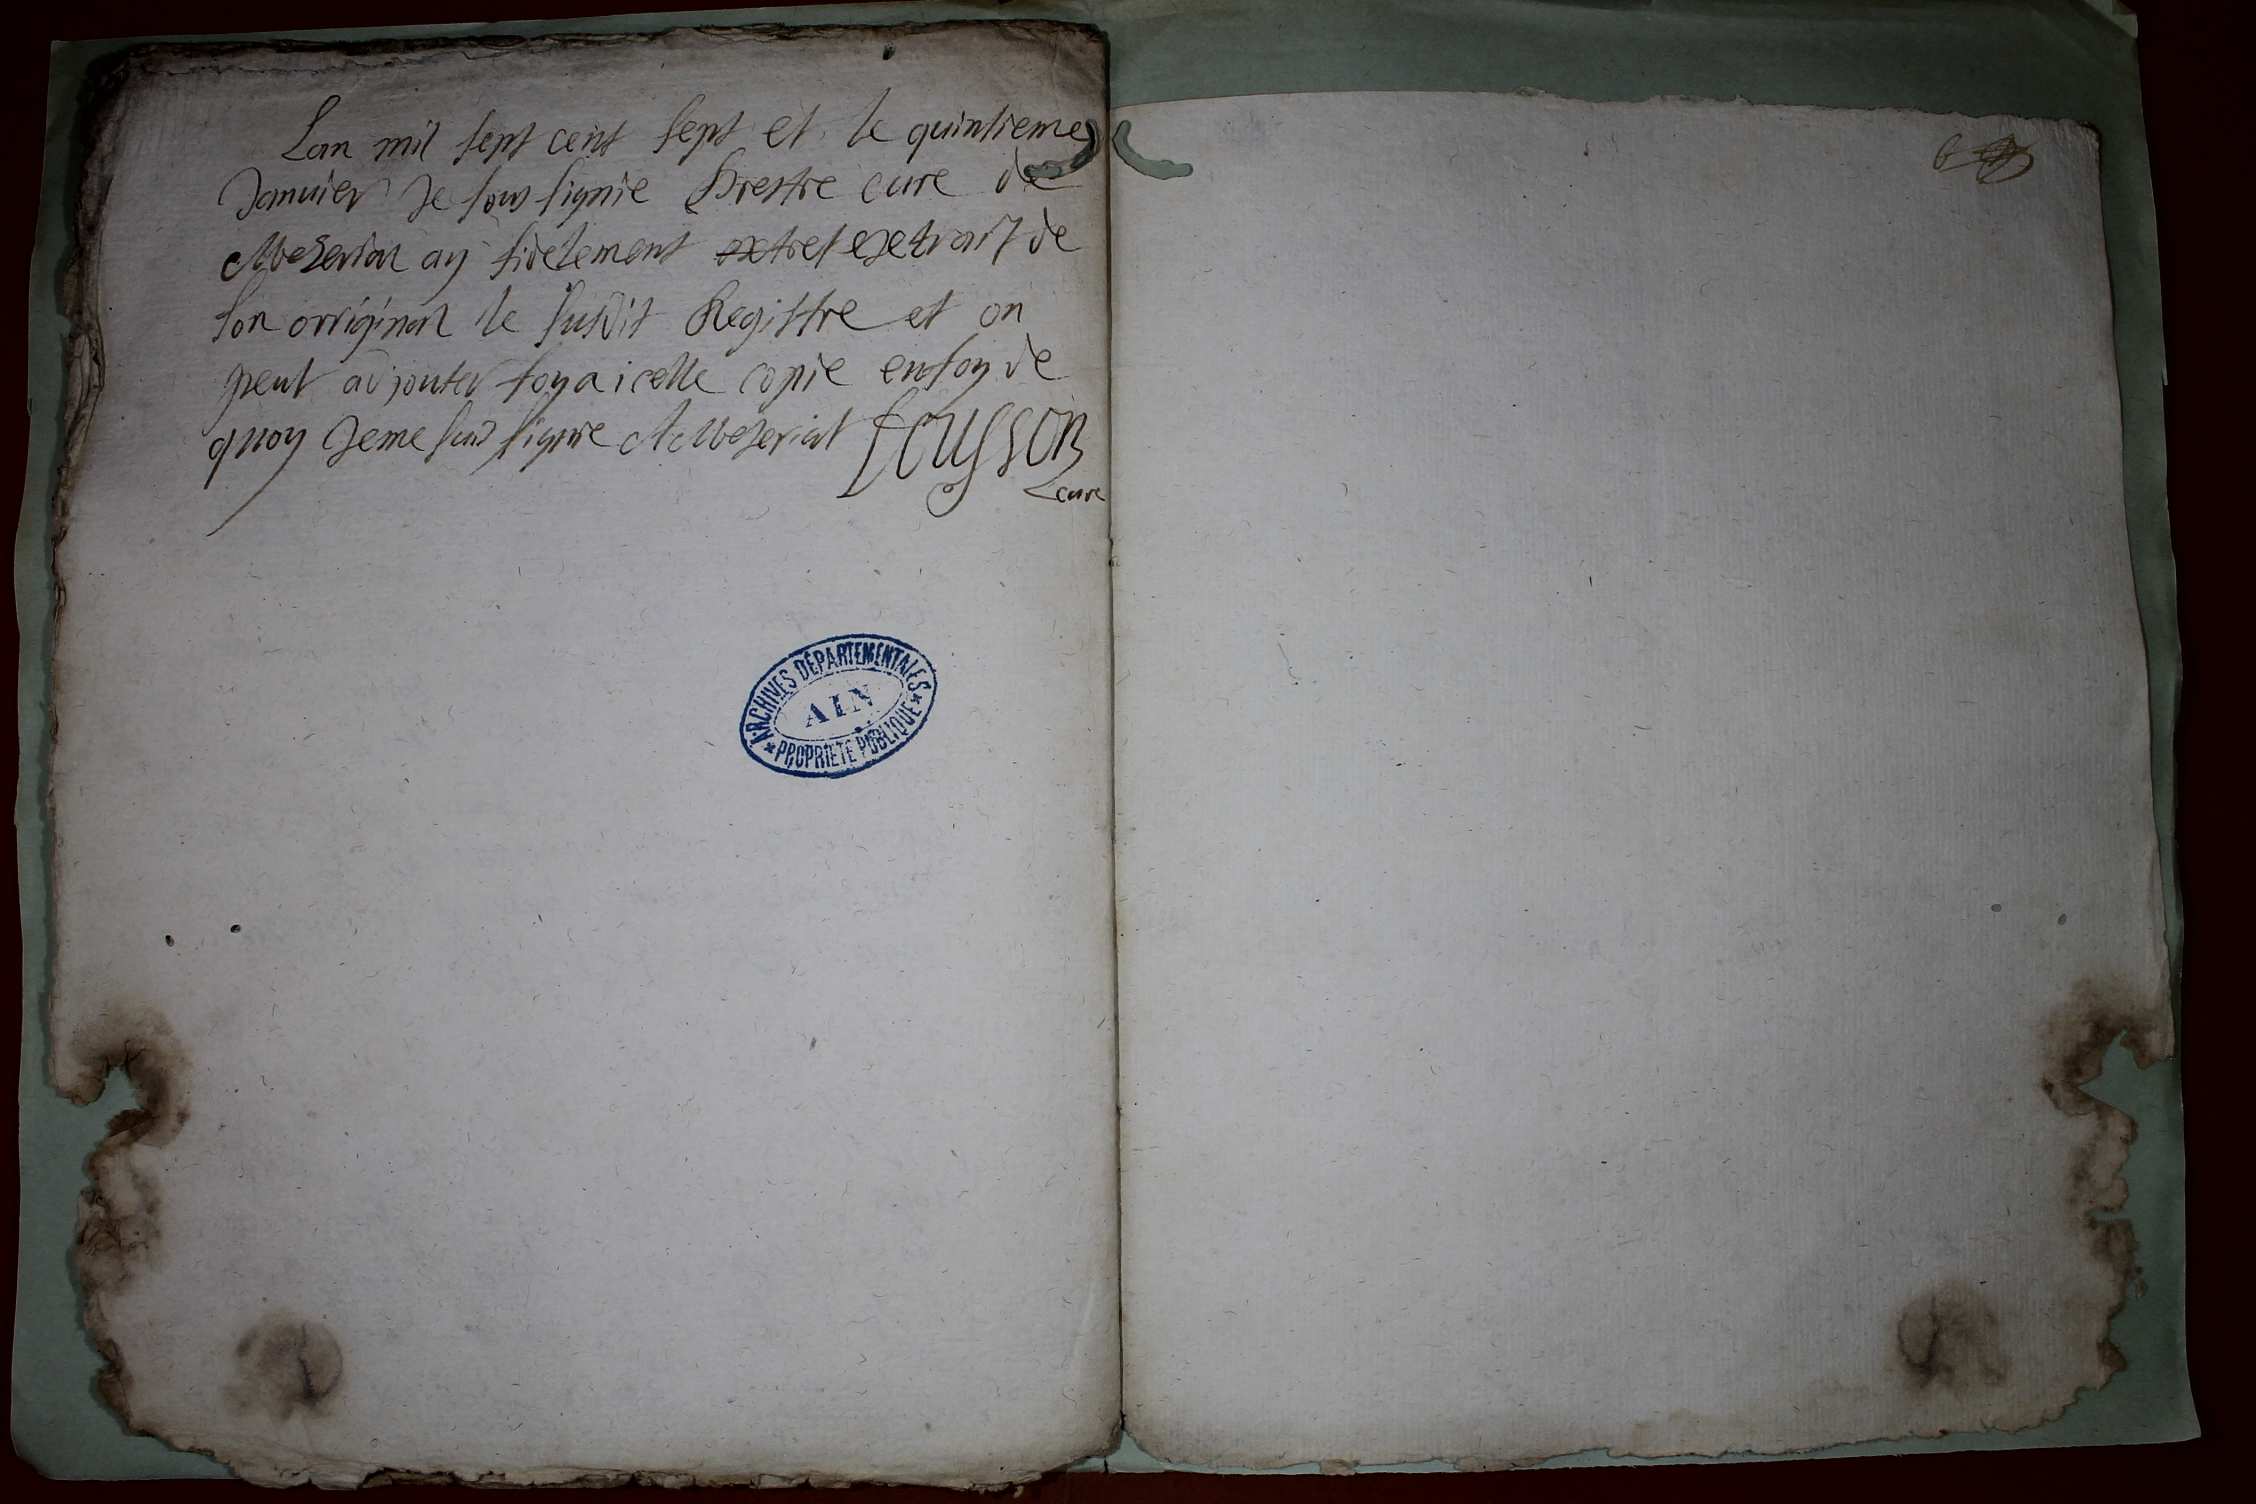 Lan mil sept cent sept et le quintieme
Januier Je sous signie Prestre cure de
Mezeriat ay fidelement extret exetrait de
son orriginal le susdit Registre et on
peut adjouter foy a icelle copie en foy de
quoy Je me suis signie A Mezeriat
cure
ARCHIVES DÉPARTEMENTALES
AIN
PROPRIÉTÉ PUBLIQUE